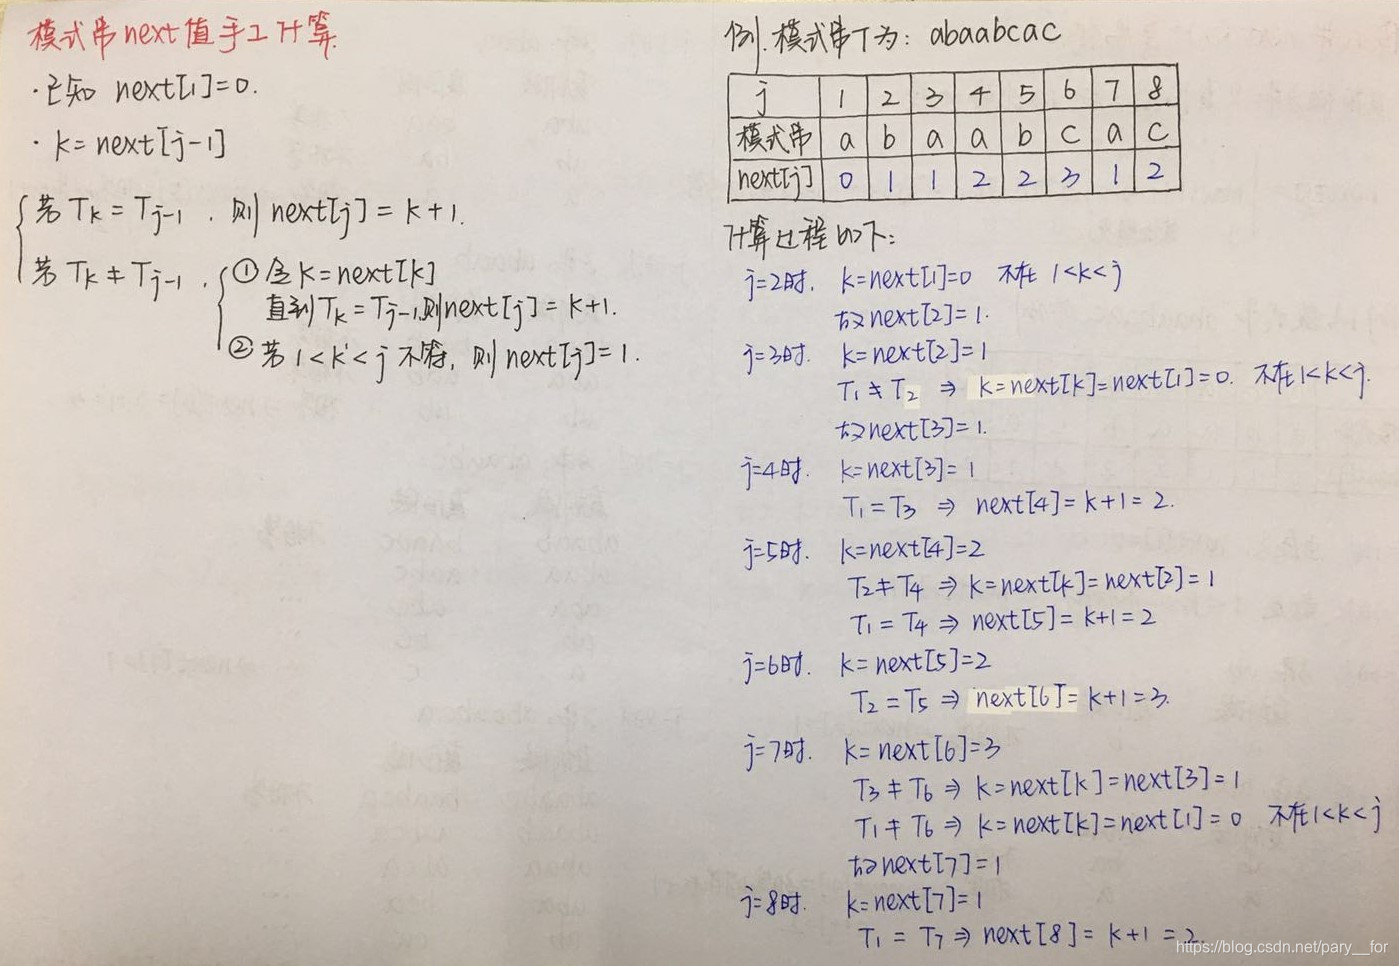 模式串next值手工计算
·已知 next[1]=0.
·k=next[j-1]
若Tk=Tj-1，则next[j]=k+1.
若Tk≠Tj-1，①令k=next[k]
直到Tk=Tj-1,则next[j]=k+1.
②若1<k<j不符，则next[j]=1.
例.模式串T为：abaabcac
j 1 2 3 4 5 6 7 8
模式串 a b a a b c a c
next[j] 0 1 1 2 2 3 1 2
计算过程如下：
j=2时. k=next[1]=0 不在1<k<j
故next[2]=1.
j=3时. k=next[2]=1
T1≠T2 ⇒ k=next[k]=next[1]=0. 不在1<k<j.
故next[3]=1.
j=4时. k=next[3]=1
T1=T3 ⇒ next[4]=k+1=2.
j=5时. k=next[4]=2
T2≠T4 ⇒ k=next[k]=next[2]=1
T1=T4 ⇒ next[5]=k+1=2
j=6时. k=next[5]=2
T2=T5 ⇒ next[6]=k+1=3.
j=7时. k=next[6]=3
T3≠T6 ⇒ k=next[k]=next[3]=1
T1≠T6 ⇒ k=next[k]=next[1]=0 不在1<k<j
故next[7]=1
j=8时. k=next[7]=1
T1=T7 ⇒ next[8]=k+1=2.
https://blog.csdn.net/pary__for